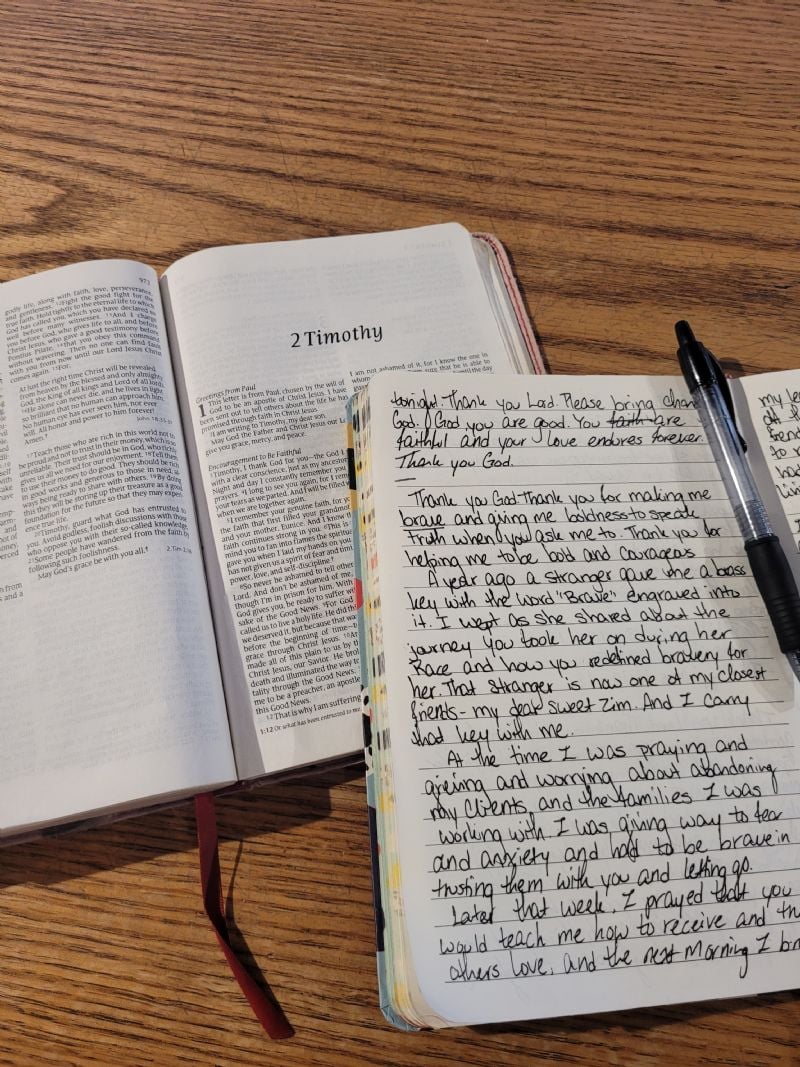 973
godly life, along with faith, love, perseverance,
and gentleness. 12Fight the good fight for the
true faith. Hold tightly to the eternal life to which
God has called you, which you have declared so
well before many witnesses. 13And I charge
you before God, who gives life to all, and before
Christ Jesus, who gave a good testimony before
Pontius Pilate, 14that you obey this command
without wavering. Then no one can find fault
with you from now until our Lord Jesus Christ
comes again. 15For,
At just the right time Christ will be revealed
from heaven by the blessed and only almighty
God, the King of all kings and Lord of all lords.
16He alone can never die, and he lives in light
so brilliant that no human can approach him.
No human eye has ever seen him, nor ever
will. All honor and power to him forever!
Amen.
17Teach those who are rich in this world not to
be proud and not to trust in their money, which is so
unreliable. Their trust should be in God, who richly
gives us all we need for our enjoyment. 18Tell them
to use their money to do good. They should be rich
in good works and generous to those in need, always
being ready to share with others. 19By doing
this they will be storing up their treasure as a good
foundation for the future so that they may experience
true life.
20Timothy, guard what God has entrusted to
you. Avoid godless, foolish discussions with those
who oppose you with their so-called knowledge.
21Some people have wandered from the faith by
following such foolishness.
May God's grace be with you all.
2 Timothy
Greetings from Paul
1 This letter is from Paul, chosen by the will of
God to be an apostle of Christ Jesus. I have
been sent out to tell others about the life he has
promised through faith in Christ Jesus.
2I am writing to Timothy, my dear son.
May God the Father and Christ Jesus our
give you grace, mercy, and peace.
Encouragement to Be Faithful
3Timothy, I thank God for you—the God I
with a clear conscience, just as my ancestors
Night and day I constantly remember
prayers. 4I long to see you again, for I
your tears as we parted. And I will be filled
when we are together again.
5I remember your genuine faith, for
the faith that first filled your grandmother
and your mother, Eunice. And I know
faith continues strong in you. 6This is
you to fan into flames the spiritual
gave you when I laid my hands on you
has not given us a spirit of fear and
power, love, and self-discipline.
8So never be ashamed to tell others
Lord. And don't be ashamed of me,
though I'm in prison for him. With
God gives you, be ready to suffer
sake of the Good News. 9For God
called us to live a holy life. He did
we deserved it, but because that was
before the beginning of time—
grace through Christ Jesus. 10
made all of this plain to us by
Christ Jesus, our Savior. He
death and illuminated the way
through the Good News.
me to be a preacher, an apostle,
this Good News.
12That is why I am suffering
1:12 Or what has been entrusted to me
I am not ashamed of it, for I know the one in
tonight. Thank you Lord. Please bring
God. God you are good. You faith are
faithful and your love endures forever.
Thank you God.
Thank you God-Thank you for making me
brave and giving me boldness to speak
truth when you ask me to. Thank you for
helping me to be bold and courageous
A year ago a stranger gave me a brass
key with the word "Brave" engraved into
it. I wept as she shared about the
journey you took her on during her
race and how you redefined bravery for
her. That stranger is now one of my closest
friends - my dear sweet Zim. And I carry
that key with me.
At the time I was praying and
grieving and worrying about abandoning
my clients, and the families I was
working with. I was giving way to fear
and anxiety and had to be brave in
trusting them with you and letting go.
Later that week, I prayed that you
would teach me how to receive and
others love, and the next morning I